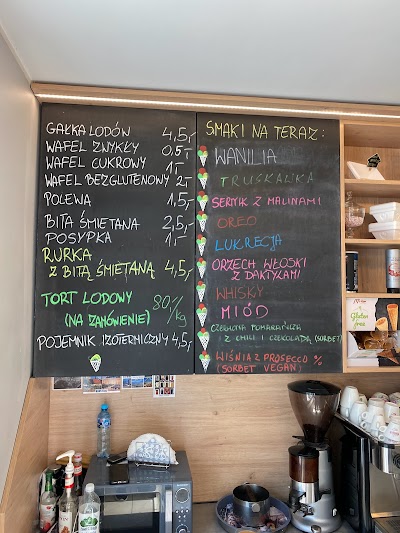 GAŁKA LODÓW 4,5,-
WAFEL ZWYKŁY 0,5,-
WAFEL CUKROWY 1,-
WAFEL BEZGLUTENOWY 2,-
POLEWA 1,5,-
BITA ŚMIETANA 2,5,-
POSYPKA 1,-
RURKA
Z BITĄ ŚMIETANĄ 4,5,-
TORT LODOWY 80,-/kg
(NA ZAMÓWIENIE)
POJEMNIK IZOTERMICZNY 4,5,-
SMAKI NA TERAZ:
WANILIA
TRUSKAWKA
SERNIK Z MALINAMI
OREO
LUKRECJA
ORZECH WŁOSKI
Z DAKTYLAMI
WHISKY
MIÓD
CZERWONA POMARAŃCZA
Z CHILI I CZEKOLADĄ (SORBET)
WIŚNIA Z PROSECCO %
(SORBET VEGAN)
Gluten
free